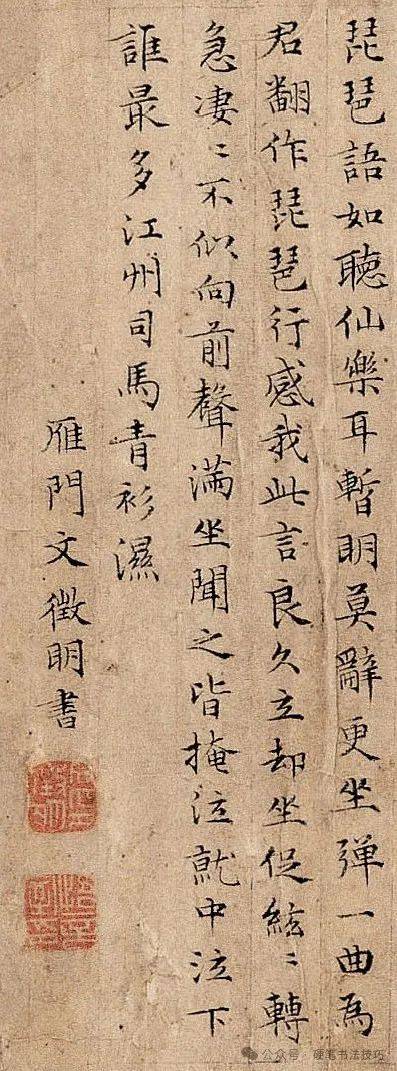 琵琶語如聴仙樂耳暫明莫辭更坐弾一曲為
君翻作琵琶行感我此言良久立却坐促絃〻轉
急凄〻不似向前聲満坐聞之皆掩泣就中泣下
誰最多江州司馬青衫濕
雁門文徵明書
公众号 · 硬笔书法技巧